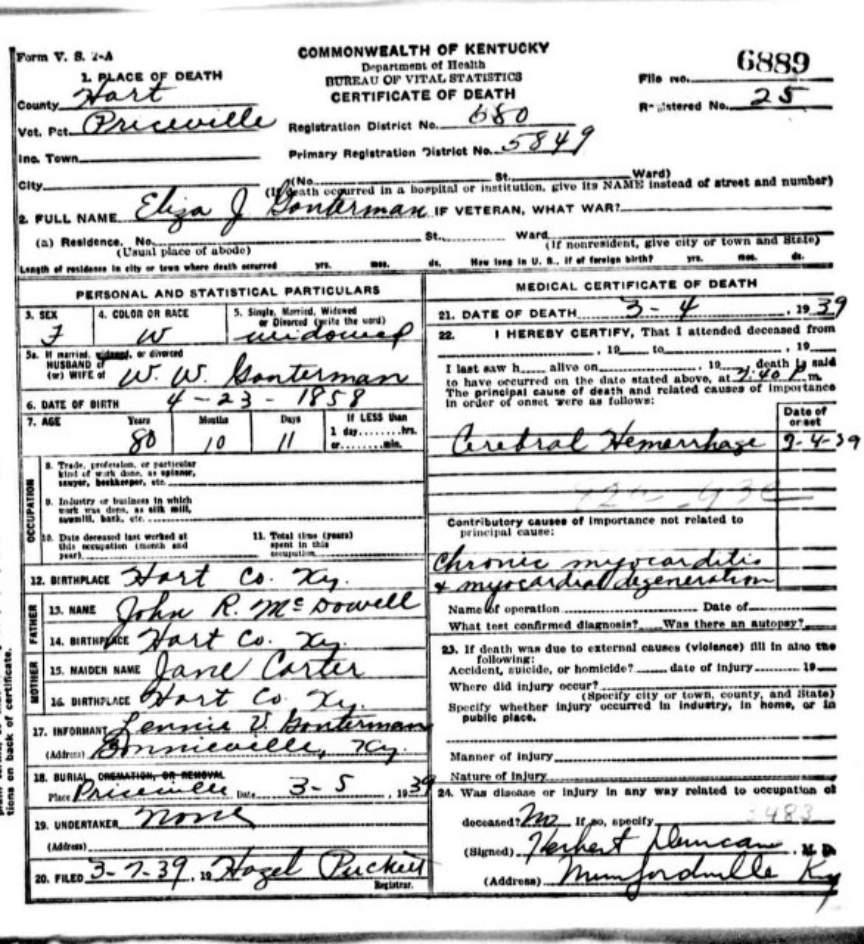 Form V. S. 2-A
COMMONWEALTH OF KENTUCKY
Department of Health
BUREAU OF VITAL STATISTICS
CERTIFICATE OF DEATH
File no. 6889
Registered No. 25
1. PLACE OF DEATH
County Hart
Vot. Pct. Priceville
Registration District No. 680
Inc. Town
Primary Registration District No. 5849
City (No. St. Ward)
(If death occurred in a hospital or institution, give its NAME instead of street and number)
2. FULL NAME Eliza J Gonterman IF VETERAN, WHAT WAR?
(a) Residence. No. St. Ward
(Usual place of abode) (If nonresident, give city or town and State)
Length of residence in city or town where death occurred yrs. mos. ds. How long in U. S., if of foreign birth? yrs. mos. ds.
PERSONAL AND STATISTICAL PARTICULARS
3. SEX F
4. COLOR OR RACE W
5. Single, Married, Widowed or Divorced (write the word) widowed
5a. If married, widowed, or divorced
HUSBAND of
(or) WIFE of W. W. Gonterman
6. DATE OF BIRTH 4-23-1858
7. AGE Years Months Days If LESS than
80 10 11 1 day hrs.
or min.
OCCUPATION
8. Trade, profession, or particular
kind of work done, as spinner,
sawyer, bookkeeper, etc.
9. Industry or business in which
work was done, as silk mill,
sawmill, bank, etc.
10. Date deceased last worked at
this occupation (month and
year)
11. Total time (years)
spent in this
occupation
12. BIRTHPLACE Hart Co. Ky.
FATHER
13. NAME John R. McDowell
14. BIRTHPLACE Hart Co. Ky.
MOTHER
15. MAIDEN NAME Jane Carter
16. BIRTHPLACE Hart Co. Ky.
17. INFORMANT Lennie V. Gonterman
(Address) Bonnieville, Ky.
18. BURIAL CREMATION, OR REMOVAL
Place Priceville Date 3-5, 1939
19. UNDERTAKER None
(Address)
20. FILED 3-7-39, 19 Hazel Puckett
Registrar.
MEDICAL CERTIFICATE OF DEATH
21. DATE OF DEATH 3-4, 1939
22. I HEREBY CERTIFY, That I attended deceased from
, 19 to , 19
I last saw h alive on , 19 death is said
to have occurred on the date stated above, at 7:40 P m.
The principal cause of death and related causes of importance
in order of onset were as follows:
Date of
onset
Cerebral Hemorrhage 3-4-39
Contributory causes of importance not related to
principal cause:
Chronic myocarditis
& myocardial degeneration
Name of operation Date of
What test confirmed diagnosis? Was there an autopsy?
23. If death was due to external causes (violence) fill in also the
following:
Accident, suicide, or homicide? date of injury 19
Where did injury occur?
(Specify city or town, county, and State)
Specify whether injury occurred in industry, in home, or in
public place.
Manner of injury
Nature of injury
24. Was disease or injury in any way related to occupation of
deceased? No If so, specify
(Signed) Herbert Duncan, M. D.
(Address) Munfordville Ky
tions on back of certificate.